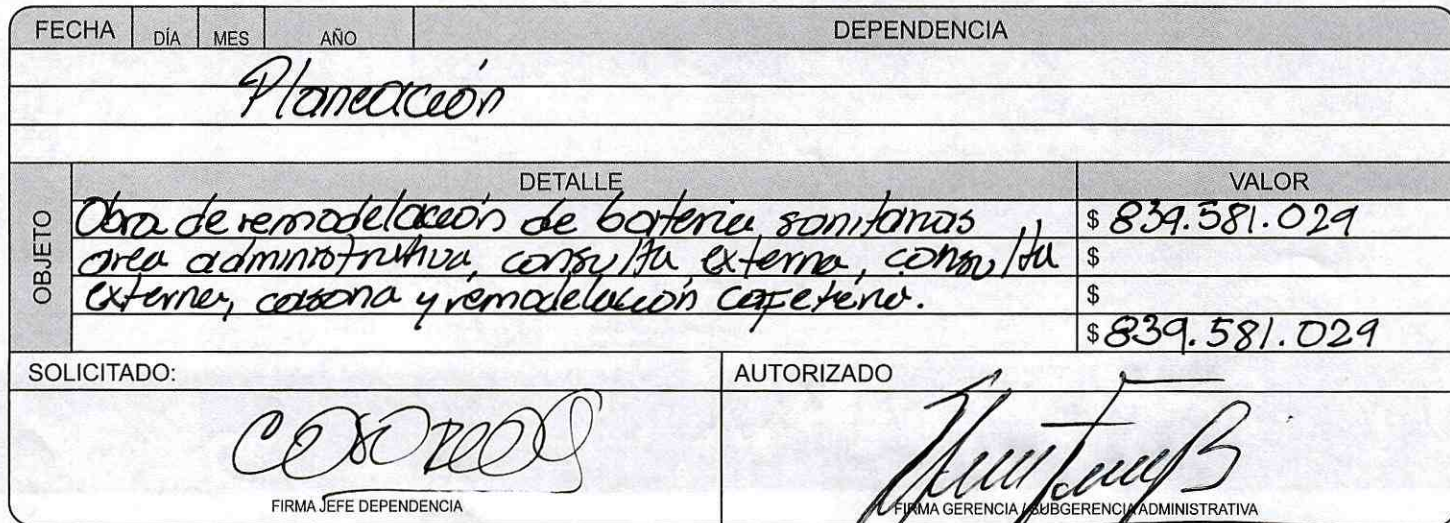 FECHA DÍA MES AÑO DEPENDENCIA
Planeación
OBJETO
DETALLE VALOR
Obra de remodelación de bateria sanitarias $ 839.581.029
area administrativa, consulta externa, consulta $
externa, casona y remodelación cafeteria. $
$ 839.581.029
SOLICITADO: AUTORIZADO
FIRMA JEFE DEPENDENCIA FIRMA GERENCIA / SUBGERENCIA ADMINISTRATIVA